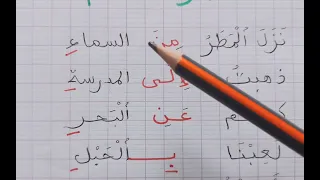 نَزَلَ ٱلْمَطَرُ مِنَ السماءِ
ذهبتُ إِلَى المدرسةِ
عَنِ ٱلْبَحرِ
لَعِبْنَا بِـٱلْحَبْلِ